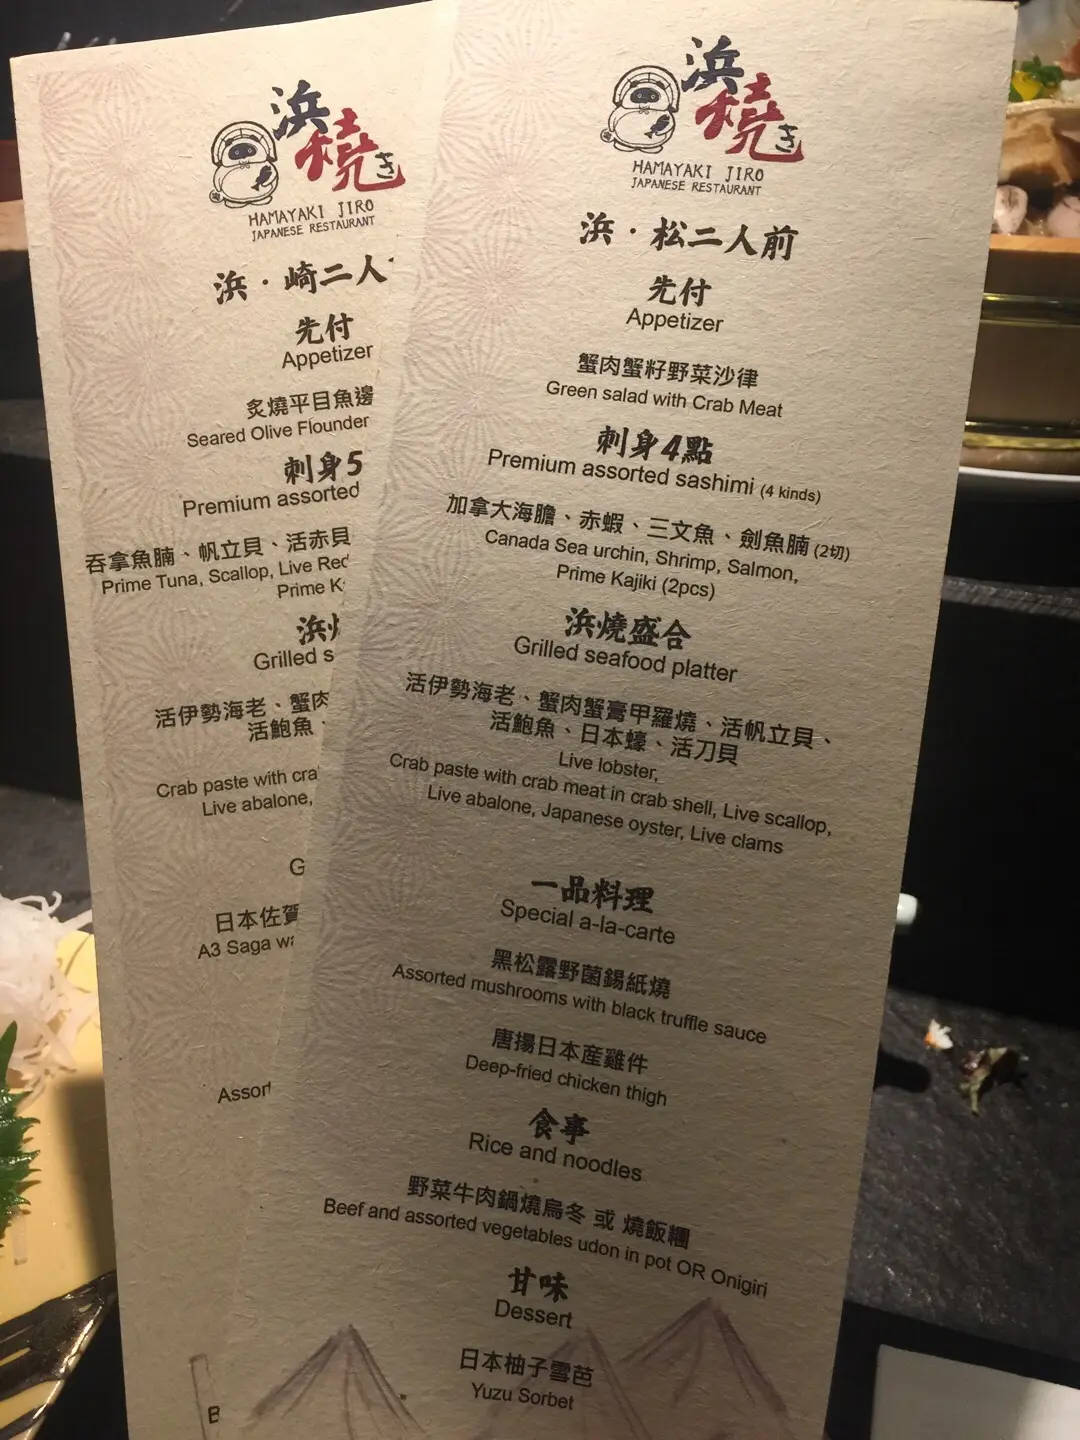 浜燒き
HAMAYAKI JIRO
JAPANESE RESTAURANT
浜・崎二人
先付
Appetizer
炙燒平目魚邊
Seared Olive Flounder
刺身5
Premium assorted
吞拿魚腩、帆立貝、活赤貝
Prime Tuna, Scallop, Live Red
Prime K
浜
Grilled s
活伊勢海老、蟹肉
活鮑魚、
Crab paste with cra
Live abalone,
G
日本佐賀
A3 Saga wa
Assort
B
浜燒き
HAMAYAKI JIRO
JAPANESE RESTAURANT
浜・松二人前
先付
Appetizer
蟹肉蟹籽野菜沙律
Green salad with Crab Meat
刺身4點
Premium assorted sashimi (4 kinds)
加拿大海膽、赤蝦、三文魚、劍魚腩 (2切)
Canada Sea urchin, Shrimp, Salmon,
Prime Kajiki (2pcs)
浜燒盛合
Grilled seafood platter
活伊勢海老、蟹肉蟹膏甲羅燒、活帆立貝、
活鮑魚、日本蠔、活刀貝
Live lobster,
Crab paste with crab meat in crab shell, Live scallop,
Live abalone, Japanese oyster, Live clams
一品料理
Special a-la-carte
黑松露野菌錫紙燒
Assorted mushrooms with black truffle sauce
唐揚日本産雞件
Deep-fried chicken thigh
食事
Rice and noodles
野菜牛肉鍋燒烏冬 或 燒飯糰
Beef and assorted vegetables udon in pot OR Onigiri
甘味
Dessert
日本柚子雪芭
Yuzu Sorbet